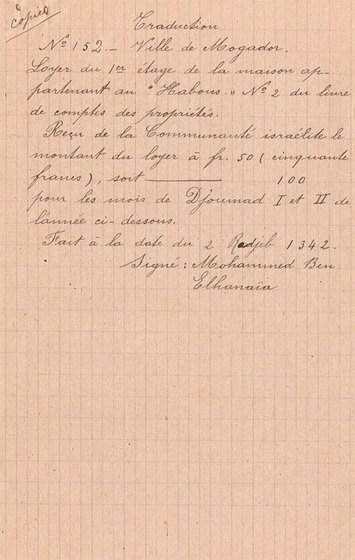 copies
Traduction
Nº 152 - Ville de Mogador.
Loyer du 1er étage de la maison ap-
partenant au "Habous" Nº 2 du livre
de comptes des propriétés.
Reçu de la Communauté israélite le
montant du loyer à fr. 50 (cinquante
francs), soit ——— 100
pour les mois de Djoumad I et II de
l'année ci-dessous.
Fait à la date du 2 Radjéb 1342.
Signé : Mohammed Ben
Elhanaïa